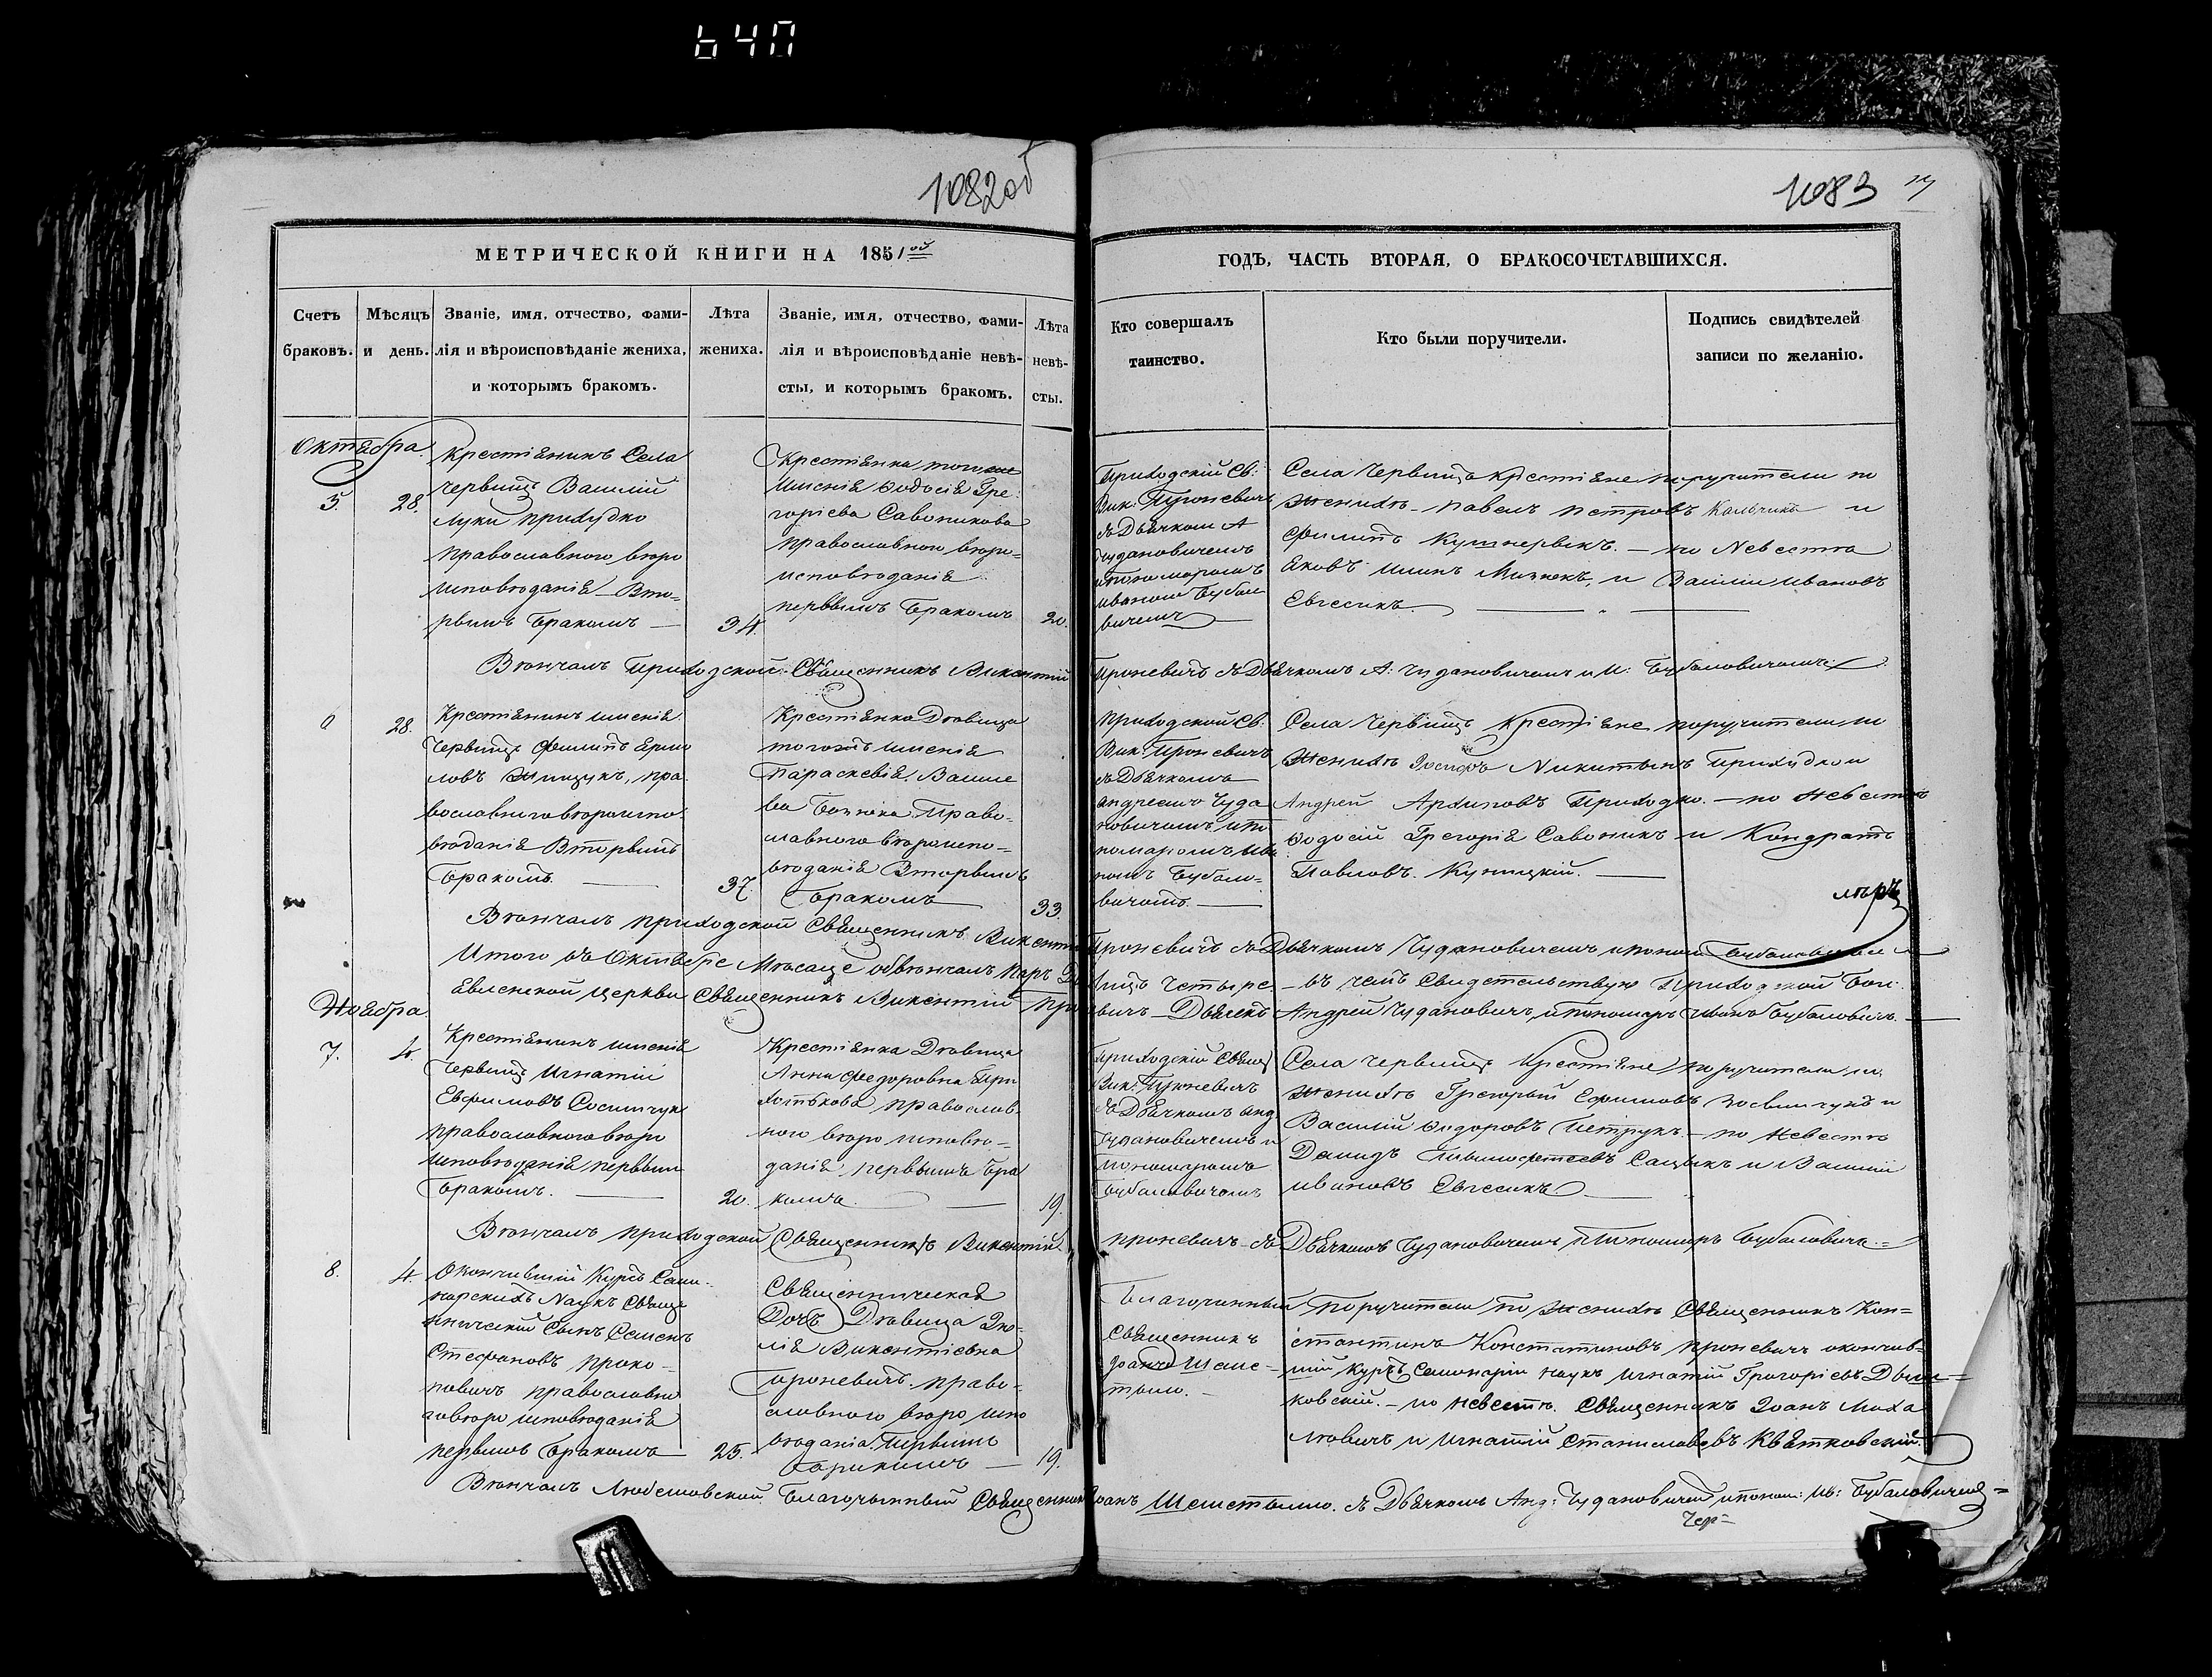 640
1082об
1083
МЕТРИЧЕСКОЙ КНИГИ НА 1851ой
ГОДЪ, ЧАСТЬ ВТОРАЯ, О БРАКОСОЧЕТАВШИХСЯ.
Счетъ
браковъ.
Мѣсяцъ
и день.
Званіе, имя, отчество, фами-
лія и вѣроисповѣданіе жениха,
и которымъ бракомъ.
Лѣта
жениха.
Званіе, имя, отчество, фами-
лія и вѣроисповѣданіе невѣ-
сты, и которымъ бракомъ.
Лѣта
невѣ-
сты.
Кто совершалъ
таинство.
Кто были поручители.
Подпись свидѣтелей
записи по желанію.
Октября
5. 28.
Крестянинъ Села
Червищъ Василій
Луки Приходко
православного вѣро
исповѣданія Вто-
рымъ бракомъ
34.
Крестянка тогоже
имѣнія Федосія Гре-
горіева Савоникова
православного вѣро-
исповѣданія
первымъ бракомъ
20.
Приходскій Св:
Вик: Проневичъ
съ Дьячкомъ А
Чудановичемъ
и пономаромъ
Иваномъ Бубало
вичемъ
Села Червищъ крестяне поручители по
женихѣ Павелъ Петровъ и
Филипъ Кушнерыкъ. — по Невесте
Яковъ и Василій Ивановъ
Евсесикъ.
Вѣнчалъ Приходской Священникъ Викентій Проневичъ съ Дьячкомъ А: Чудановичемъ и И: Бубаловичомъ
6 28.
Крестянинъ имѣнія
Червищъ Филипъ Ермо
ловъ пра-
вославного вѣроиспо-
вѣданія Вторымъ
бракомъ.
37.
Крестянка Дѣвица
тогожъ имѣнія
Параскевія Василе
ва Право-
славного вѣроиспо-
вѣданія Вторымъ
бракомъ
33.
Приходской Св:
Вик: Проневичъ
съ Дьячкомъ
Андреемъ Чуда
новичомъ и по
номаромъ Ива
номъ Бубало-
вичомъ.
Села Червищъ Крестяне поручители по
женихѣ Іосифъ Никитынъ Приходко и
Андрей Архиповъ Приходко. — по Невестѣ
Федосій Грегорія Савоникъ и Кондратъ
Павловъ Куницкій.
Вѣнчалъ приходской Священникъ Викентій Проневичъ съ Дьячкомъ Чудановичемъ и пономаръ Бубаловичомъ
Итого въ Октябре Мѣсяце обвѣнчалъ паръ лицъ Четыре. — въ чемъ Свидетельствую Приходской Бого
явленской церкви Священникъ Викентій Проневичъ Дьячекъ Андрей Чудановичъ, и пономаръ Иванъ Бубаловичъ.
Ноября
7. 4.
Крестянинъ имѣнія
Червищъ Игнатій
Евфимовъ Сосимчукъ
православного вѣро
исповѣданія первымъ
бракомъ.
20.
Крестянка Дѣвица
Анна Федоровна При
православ-
ного вѣро исповѣ-
данія первымъ бра
комъ.
19.
Приходскій Свящ
Вик: Проневичъ
съ Дьячкомъ Анд
Чудановичемъ и
пономаромъ
Бубаловичомъ
Села Червищъ Крестяне поручители по
женихѣ Грегорый Ефимовъ и
Василій Федоровъ Петрукъ — по Невестѣ
Демидъ Тымофеевъ Сацыкъ и Василій
Ивановъ Евсесикъ
Вѣнчалъ приходской Священникъ Викентій Проневичъ съ Дьячкомъ Чудановичемъ Пономаръ Бубаловичъ
8. 4.
Окончившій Курсъ Семи-
нарскихъ Наукъ Свяще
нническій Сынъ Семенъ
Стефановъ Проко-
повичъ православно
го вѣро исповѣданія
первымъ бракомъ
25.
Священническая
Дочь Дѣвица Эми-
лія Викентіевна
Проневичъ право-
славного вѣро испо
вѣданія. Первымъ
бракомъ
19.
Благочинный
Священникъ
Іоанъ Шеме-
тыло.
Поручители по женихѣ Священникъ Кон-
стантинъ Константиновъ Проневичъ окончив-
шій курсъ Семинаріи наукъ Игнатій Григоріевъ
ковскій. — по невестѣ. Священникъ Іоанъ Миха
ловичъ и Игнатій Станиславовъ Квятковскій.
Вѣнчалъ Любешовской Благочынный Священникъ Іоанъ Шеметыло. съ Дьячкомъ Анд: Чудановичемъ и поном: Ив: Бубаловичемъ